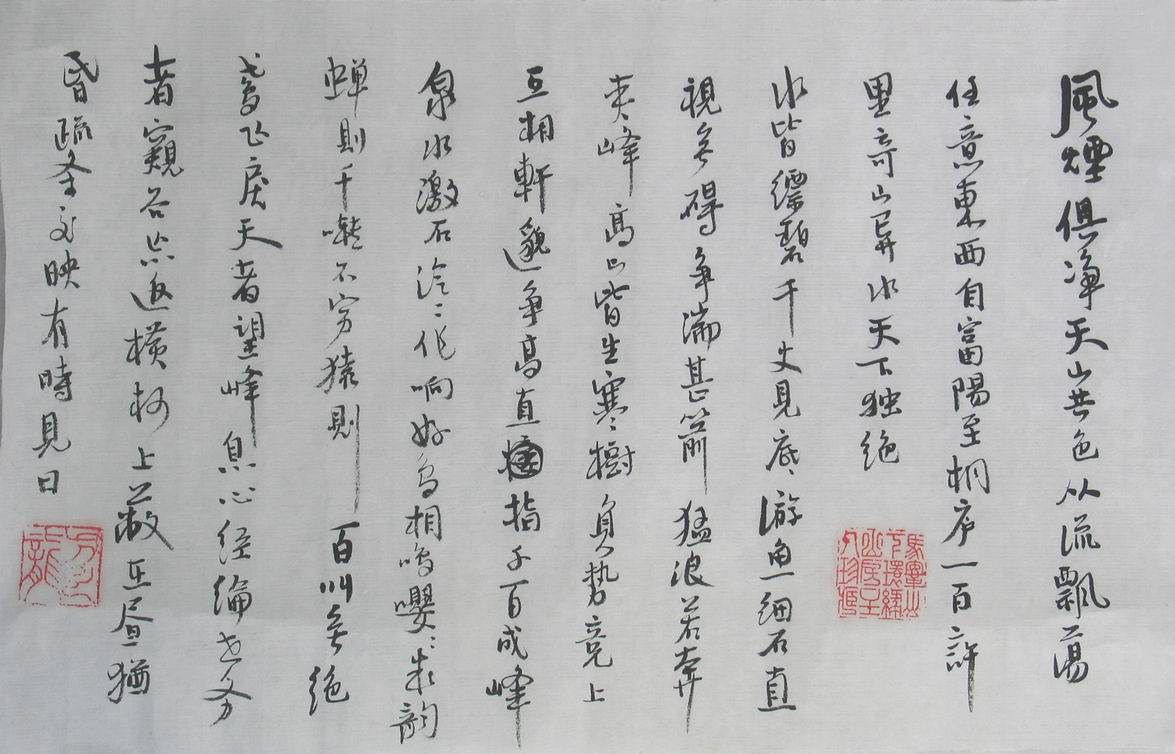 風煙俱淨天山共色从流飄蕩
任意東西自富陽至桐庐一百許
里奇山异水天下独绝
水皆縹碧千丈見底游鱼细石直
視无碍争湍甚箭猛浪若奔
夹峰高山皆生寒樹負势竞上
互相軒邈争高直指千百成峰
泉水激石泠泠作响好鸟相鸣嚶嚶成韵
蝉則千囀不穷猿則百叫无绝
鸢飞戾天者望峰息心经綸世务
者窥谷忘返横柯上蔽在昼猶
昏疏条交映有時見日